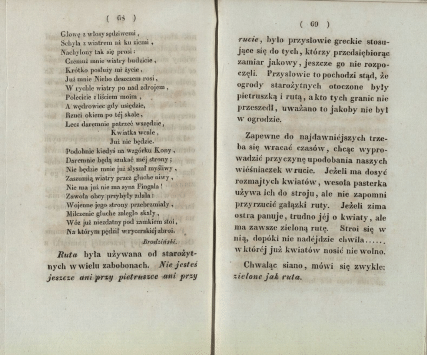 ( 68 )
Głonę z włosy sędziwemi,
Schyla z wiatrem aż ku ziemi,
Nachylony tak się prosi:
Czemuż mnie wiatry budzicie,
Krótkie posłuży mi życie,
Już mnie Niebo deszczem rosi,
W rychle wiatry po nad zdrojem,
Polecicie z liściem moim,
A wędrowiec gdy usiędzie,
Rzuci okiem po tej skale,
Lecz daremnie patrzeć wszędzie,
Kwiatka wcale,
Już nie będzie.
Podobnie kiedyś na wzgórku Kony,
Daremnie będą szukać mej strony;
Nie będzie mnie już słyszał myśliwy,
Zanucą wiatry przez głuche niwy,
Nie ma już nie ma syna Fingala!
Zawoła obcy przybyły zdala:
Wojenne jego strony przebrzmiały,
Milczenie głuche zaległo skały,
Wóz już niezdatny pod zamkiem stoi,
Na którym pędził zwycięzkiej zbroi.
Brodziński.
Ruta była używana od starożyt-
nych w wielu zabobonach. Nie jesteś
jeszcze ani przy pietruszce ani przy
( 69 )
rucie, było przysłowie greckie stosu-
jące się do tych, którzy przedsiębiorąc
zamiar jakowy, jeszcze go nie rozpo-
częli. Przysłowie to pochodzi stąd, że
ogrody starożytnych otoczone były
pietruszką i rutą, a kto tych granic nie
przeszedł, uważano to jakoby nie był
w ogrodzie.
Zapewne do najdawniejszych trze-
ba się wracać czasów, chcąc wypro-
wadzić przyczynę upodobania naszych
wieśniaczek w rucie. Jeżeli ma dosyć
rozmajtych kwiatów, wesoła pasterka
używa ich do stroju, ale nie zapomni
przyrzucić gałązki ruty. Jeżeli zima
ostra panuje, trudno jéj o kwiaty, ale
ma zawsze zieloną rutę. Stroi się w
nią, dopóki nie nadejdzie chwila......,
w któréj już kwiatów nosić nie wolno.
Chwaląc siano, mówi się zwykle:
zielone jak ruta.